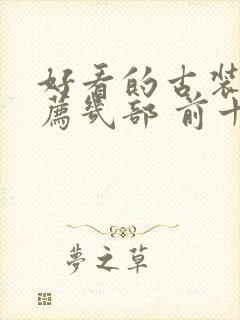 好看的古装
薦几部 前十
夢之草